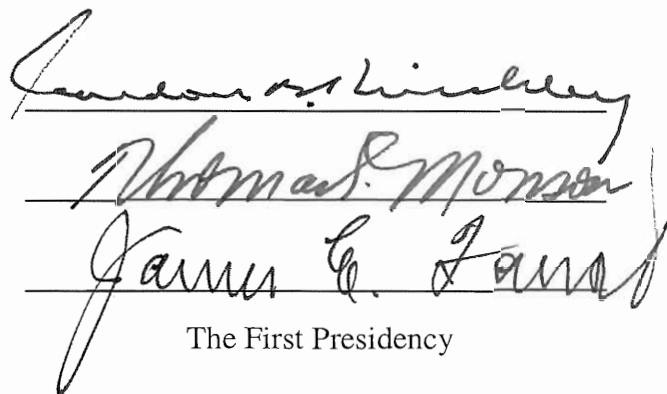 Gordon B. Hinckley
Thomas S. Monson
James E. Faust
The First Presidency